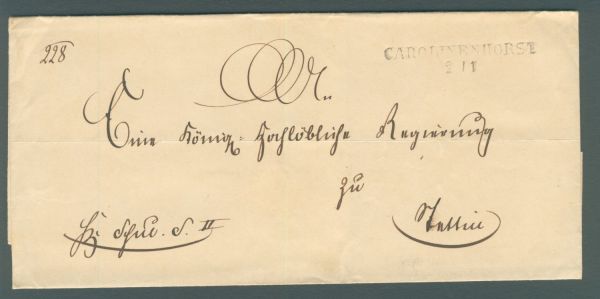 228
CAROLINENHORST
2/1
An
Eine Königl: Hochlöbliche Regierung
zu
Stettin